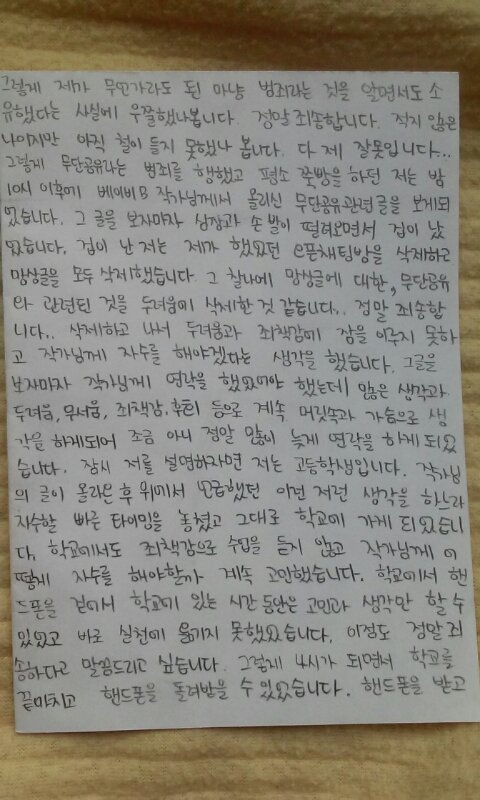 그렇게 제가 무언가라도 된 마냥 범죄라는 것을 알면서도 소
유했다는 사실에 우쭐했나봅니다. 정말 죄송합니다. 적지 않은
나이지만 아직 철이 들지 못했나 봅니다. 다 제 잘못입니다...
그렇게 무단공유라는 범죄를 행했고 평소 꽃방을 하던 저는 밤
10시 이후에 베이비B 작가님께서 올리신 무단공유관련글을 보게되
었습니다. 그 글을 보자마자 심장과 손발이 떨려오면서 겁이 났
었습니다. 겁이 난 저는 제가 했었던 오픈채팅방을 삭제하고
망상글을 모두 삭제했습니다. 그 찰나에 망상글에 대한, 무단공유
와 관련된 것을 두려움에 삭제한 것 같습니다.. 정말 죄송합
니다.. 삭제하고 나서 두려움과 죄책감에 잠을 이루지 못하
고 작가님께 자수를 해야겠다는 생각을 했습니다. 그글을
보자마자 작가님께 연락을 했었어야 했는데 않은 생각과
두려움, 무서움, 죄책감, 후회 등으로 계속 머릿속과 가슴으로 생
각을 하게되어 조금 아니 정말 많이 늦게 연락을 하게 되었
습니다. 잠시 저를 설명하자면 저는 고등학생입니다. 작가님
의 글이 올라온 후 위에서 언급했던 이런 저런 생각을 하느라
자수할 빠른 타이밍을 놓쳤고 그대로 학교에 가게 되었습니
다. 학교에서도 죄책감으로 수업을 듣지 않고 작가님께 어
떻게 자수를 해야할까 계속 고민했습니다. 학교에서 핸
드폰을 걷어서 학교에 있는 시간 동안은 고민과 생각만 할 수
있었고 바로 실천에 옮기지 못했었습니다. 이점도 정말 죄
송하다고 말씀드리고 싶습니다. 그렇게 4시가 되면서 학교를
끝마치고 핸드폰을 돌려받을 수 있었습니다. 핸드폰을 받고